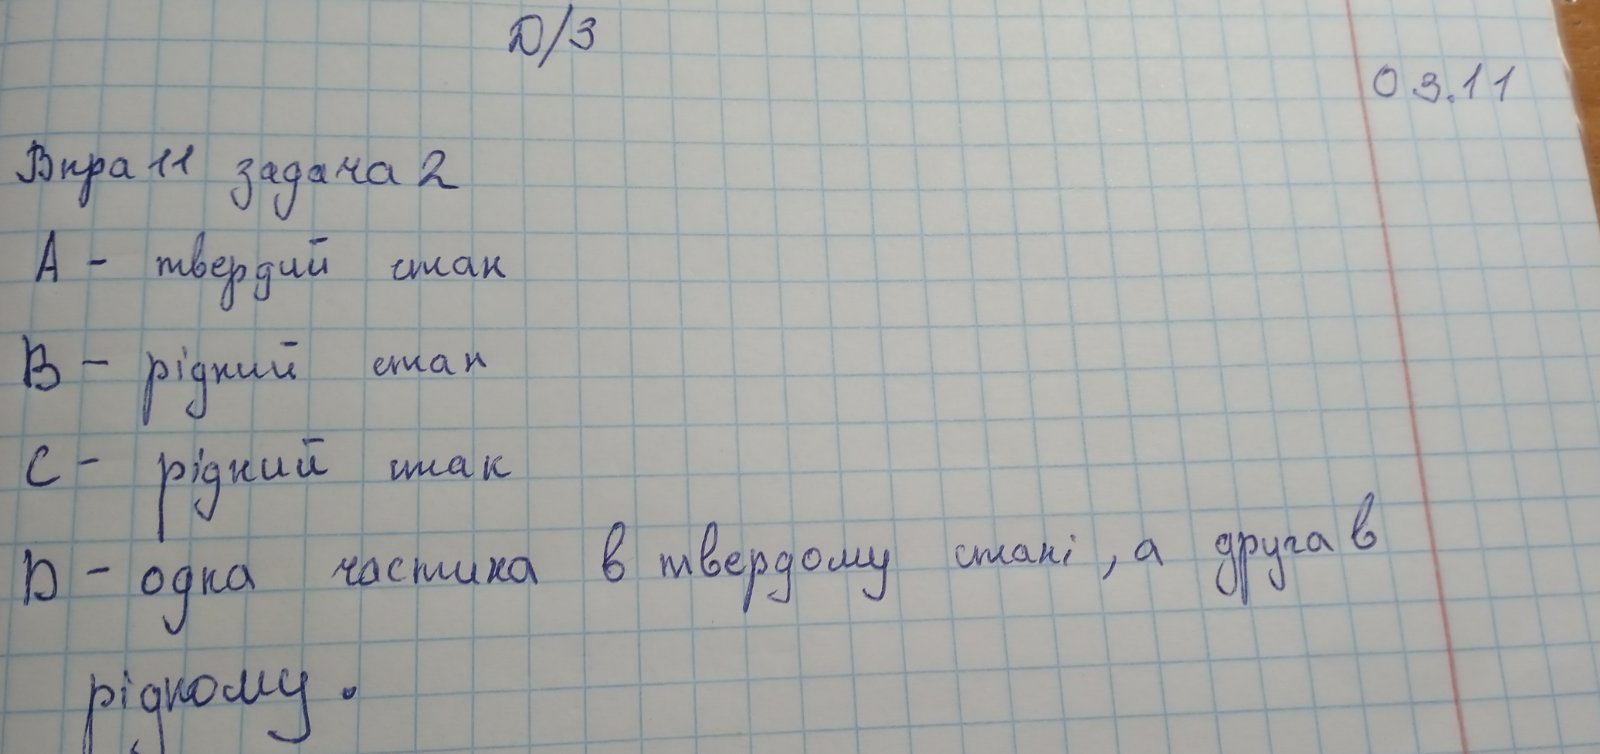 Д/З
03.11
Впра 11 задача 2
А - твердий стан
В - рідний стан
С - рідний стан
D - одна частина в твердому стані, а друга в
рідному.